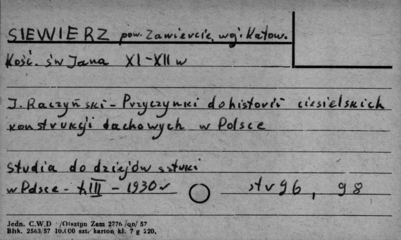 SIEWIERZ pow. Zawiercie, woj. Katow.
Kość. św Jana XI-XII w
J. Raczyński - Przyczynki do historii ciesielskich
konstrukcji dachowych w Polsce
Studia do dziejów sztuki
w Polsce - t. III - 1930 r str 96, 98
Jedn. C.W.D Olsztyn Zam 2776/qn/57
Bibk. 2563/57 10.000 szt. karton kl. 7 g 220.